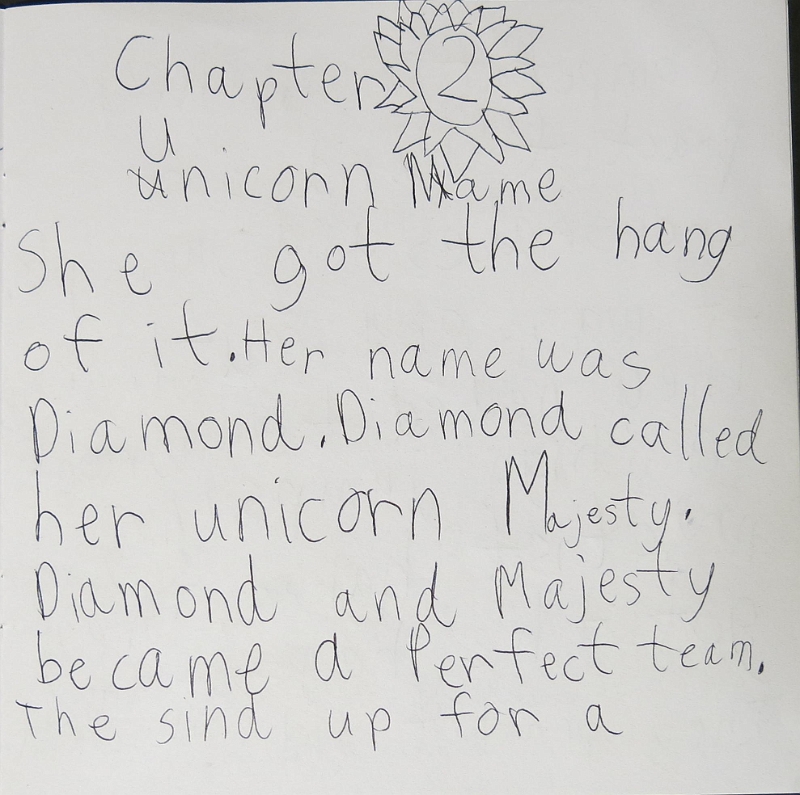 Chapter 2
Unicorn Name
She got the hang
of it. Her name was
Diamond. Diamond called
her unicorn Majesty.
Diamond and Majesty
became a Perfect team.
The sind up for a